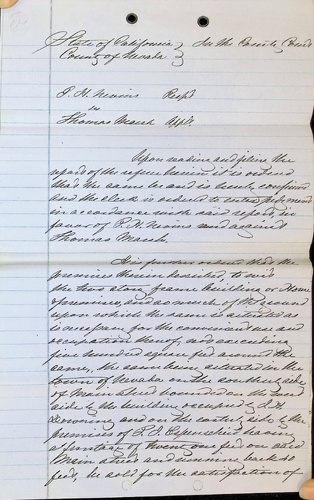 State of California } In the County Court
County of Nevada }
J. H. Nevins Respt
vs
Thomas Marsh Applt.
Upon reading and filing the
report of the referee herein it is ordered
that the same be and is hereby confirmed
and the clerk is ordered to enter judgment
in accordance with said report in
favor of J. H. Nevins and against
Thomas Marsh.
It is further ordered that the
premises therein described, to wit
the two story frame building or House
& premises, and so much of the ground
upon which the same is situated as
is necessary for the convenient use and
occupation thereof, not exceeding
five hundred square feet around the
same, the same being situated in the
town of Nevada on the southerly side
of Main street bounded on the west
side by the building occupied by
Downing and on the easterly side by the
premises of having
a frontage of twenty one feet on said
Main street and running back 80
feet, be sold for the satisfaction of